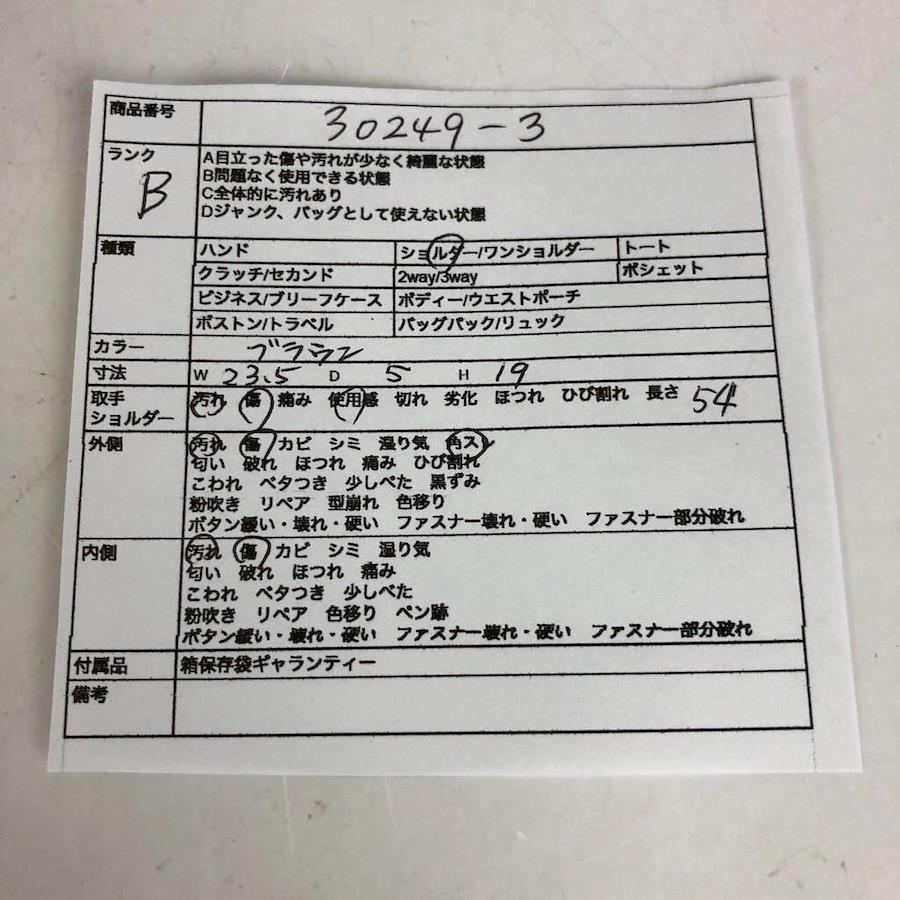 商品番号 30249-3
ランク B
A目立った傷や汚れが少なく綺麗な状態
B問題なく使用できる状態
C全体的に汚れあり
Dジャンク、バッグとして使えない状態
種類 ハンド ショルダー/ワンショルダー トート
クラッチ/セカンド 2way/3way ポシェット
ビジネス/ブリーフケース ボディー/ウエストポーチ
ボストン/トラベル バッグパック/リュック
カラー ブラウン
寸法 W 23.5 D 5 H 19
取手 汚れ 傷 痛み 使用感 切れ 劣化 ほつれ ひび割れ 長さ 54
ショルダー
外側 汚れ 傷 カビ シミ 湿り気 角スレ
匂い 破れ ほつれ 痛み ひび割れ
こわれ ベタつき 少しべた 黒ずみ
粉吹き リペア 型崩れ 色移り
ボタン緩い・壊れ・硬い ファスナー壊れ・硬い ファスナー部分破れ
内側 汚れ 傷 カビ シミ 湿り気
匂い 破れ ほつれ 痛み
こわれ ベタつき 少しべた
粉吹き リペア 色移り ペン跡
ボタン緩い・壊れ・硬い ファスナー壊れ・硬い ファスナー部分破れ
付属品 箱保存袋ギャランティー
備考